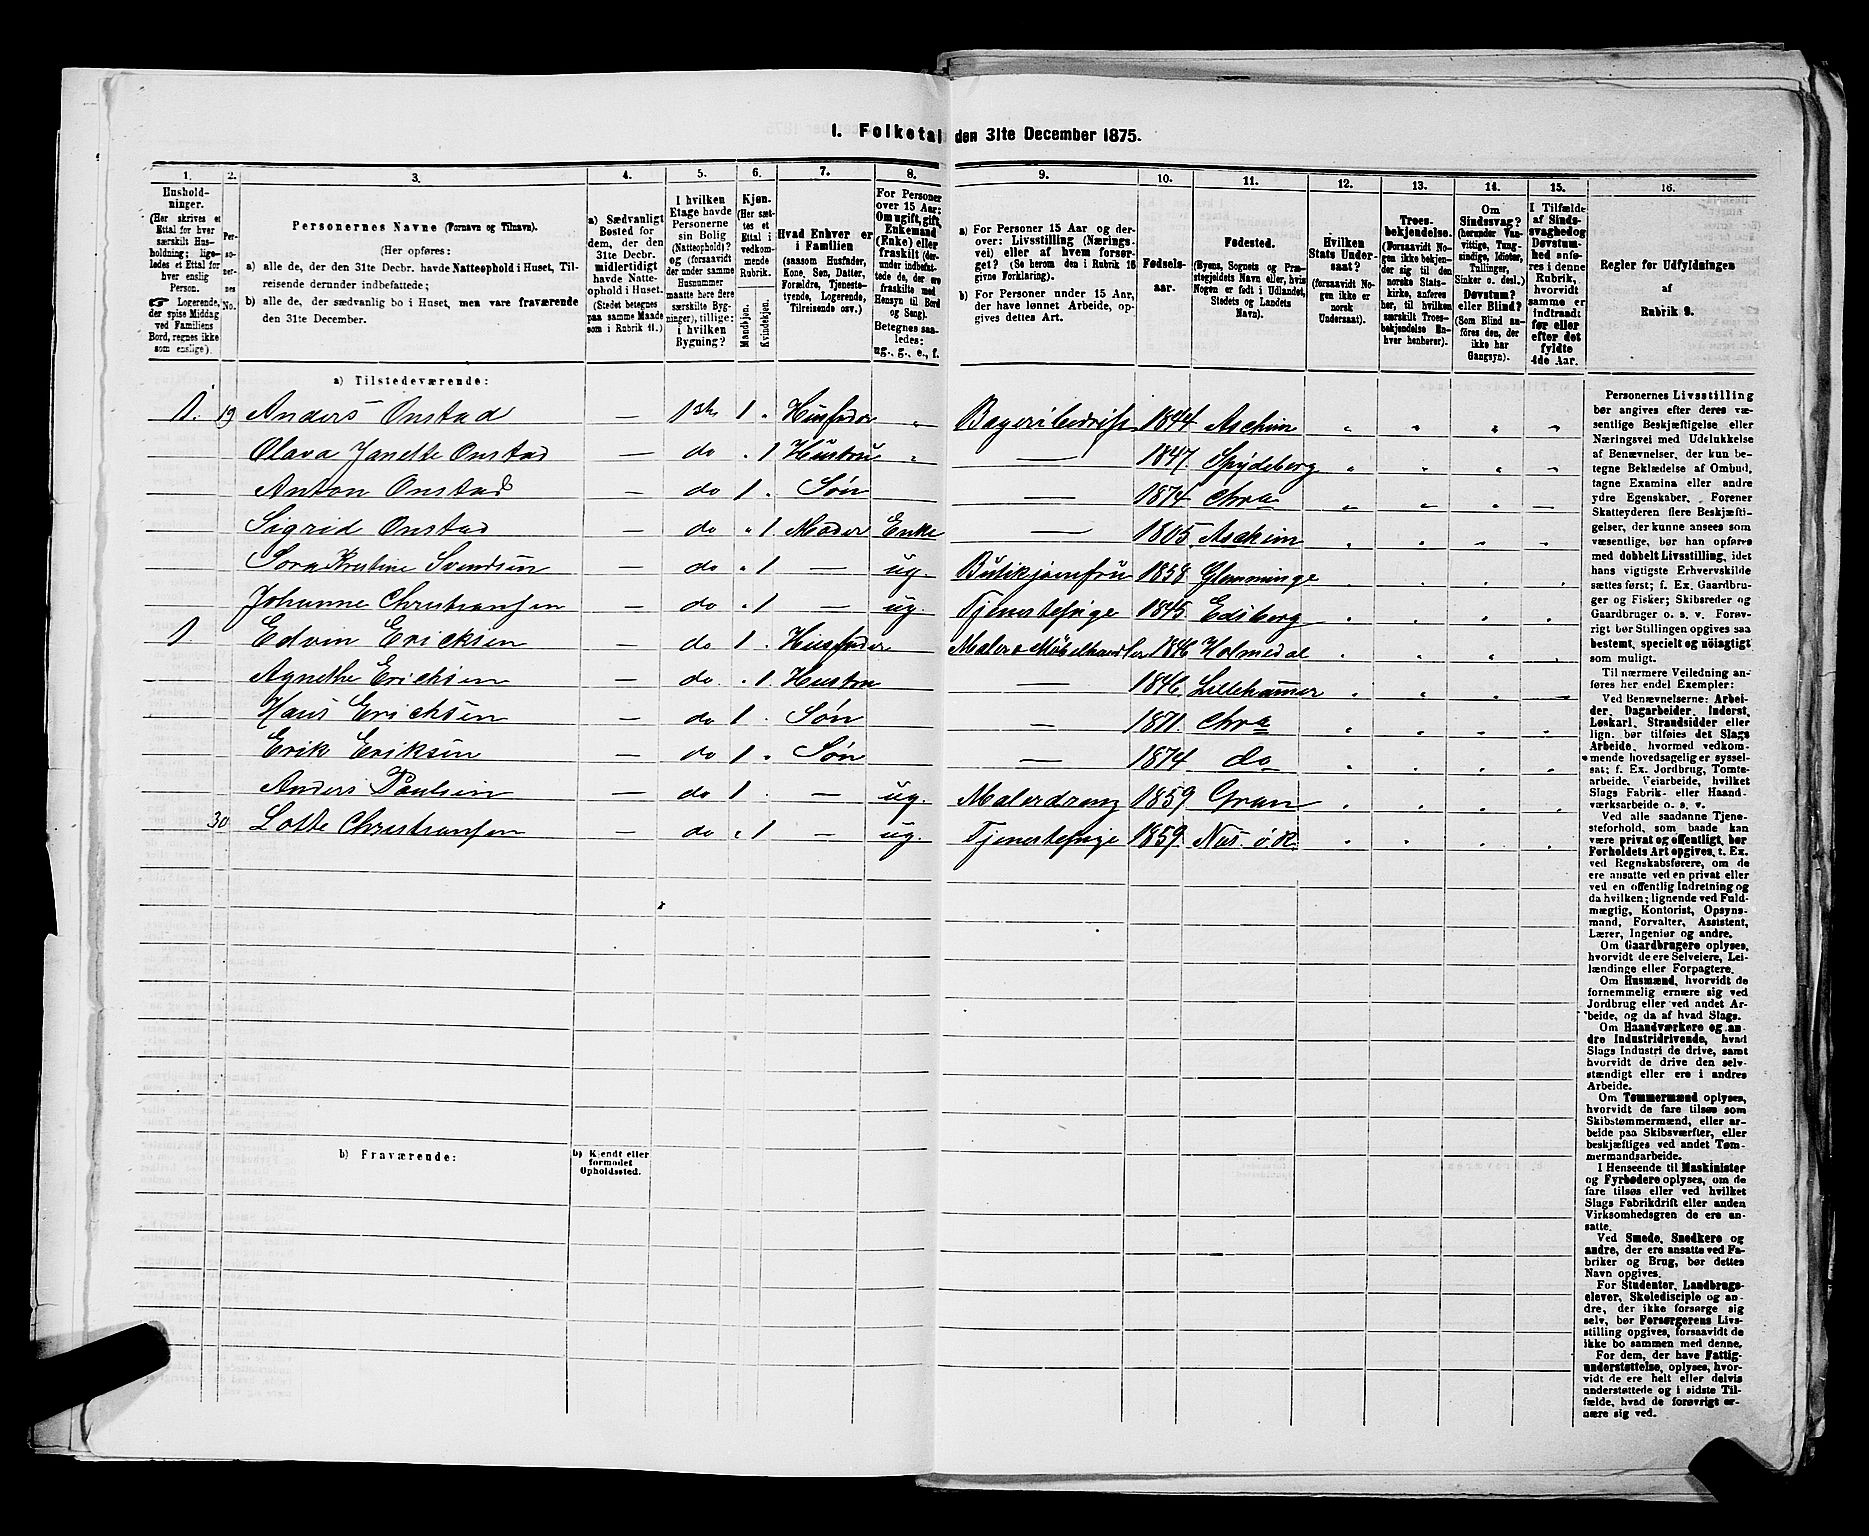 I. Folketal den 31te December 1875.
1.
Hushold-
ninger.
(Her skrives et
Ettal for hver
særskilt Hus-
holdning; lige-
ledes et Ettal for
hver enslig
Person.
☞ Logerende,
der spise Middag
ved Familiens
Bord, regnes ikke
som enslige).
2.
Per-
so-
ner-
nes
No.
3.
Personernes Navne (Fornavn og Tilnavn).
(Her opføres:
a) alle de, der den 31te Decbr. havde Natteophold i Huset, Til-
reisende derunder indbefattede;
b) alle de, der sædvanlig bo i Huset, men vare fraværende
den 31te December.
4.
a) Sædvanligt
Bosted for
dem, der den
31te Decbr.
midlertidigt
havde Natte-
ophold i Huset.
(Stedet betegnes
paa samme Maade
som i Rubrik 11.)
5.
I hvilken
Etage havde
Personerne
sin Bolig
(Natteophold)?
og (forsaavidt
der under samme
Husnummer
maatte høre flere
særskilte Byg-
ninger), tillige:
i hvilken
Bygning?
6.
Kjøn.
(Her sæt-
tes et
Ettal i
vedkom-
mende
Rubrik.
Mandkjøn.
Kvindekjøn.
7.
Hvad Enhver er
i Familien
(saasom Husfader,
Kone, Søn, Datter,
Forældre, Tjeneste-
tyende, Logerende,
Tilreisende osv.)
8.
For Personer
over 15 Aar;
Om ugift, gift,
Enkemand
(Enke) eller
fraskilt (der-
under indbefat-
tede de, der ere
fraskilte med
Hensyn til Bord
og Seng).
Betegnes saa-
ledes:
ug., g., e., f.
9.
a) For Personer 15 Aar og der-
over: Livsstilling (Nærings-
vei) eller af hvem forsør-
get? (Se herom den i Rubrik 16
givne Forklaring).
b) For Personer under 15 Aar,
der have lønnet Arbeide, op-
gives dettes Art.
10.
Fødsels-
aar.
11.
Fødested.
(Byens, Sognets og Præ-
stegjeldets Navn eller, hvis
Nogen er født i Udlandet,
Stedets og Landets
Navn).
12.
Hvilken
Stats Under-
saat?
(forsaavidt No-
gen ikke er
norsk
Undersaat).
13.
Troes-
bekjendelse.
(Forsaavidt No-
gen ikke bekjen-
der sig til den
norske Stats-
kirke, anføres
her, til hvilken
særskilt Troes-
bekjendelse En-
hver henhører).
14.
Om
Sindssvag?
(herunder Van-
vittige, Tung-
sindige, Idioter,
Tullinger,
Sinker o. desl.)
Døvstum?
eller Blind?
(Som Blind an-
føres den, der
ikke har
Gangsyn).
15.
I Tilfælde
af Sinds-
svaghed og
Døvstum-
hed anfø-
res i denne
Rubrik,
hvorvidt
samme er
indtraadt
før eller
efter det
fyldte
4de Aar.
16.
Regler for Udfyldningen
af
Rubrik 9.
a) Tilstedeværende:
1. 19 Anders Onstad — 1st 1 „ Husfader „ Bageribedrift 1844 Aschim
Olava Janette Onstad — do „ 1 Hustru „ — 1847. Spydeberg
Anton Onstad — do 1 . Søn — 1874 Chra
Sigrid Onstad — do „ 1. Moder Enke — 1805 Aschim
Kristine Svendsen — do „ 1 — ug. Butikjomfru 1858 Glemminge
Johanne Christiansen — do „ 1 — ug. Tjenestepige 1845 Edsberg
1 Edvin Ericksen — do 1. Husfader Maler & Møbelhandler 1846 Holmedal
Agnethe Ericksen — do. . 1. Hustru — 1846. Lillehammer
Hans Ericksen — do 1 . Søn — 1871. Chra
Erik Eriksen — do 1 „ Søn — 1874 do
Anders Paulsen — do 1 . — ug. Malerdreng 1859 Gran
30 Lotte Christiansen — do „ 1 — ug. Tjenestepige 1859. Næs ø R.
b) Fraværende:
b) Kjendt eller
formodet
Opholdssted.
Personernes Livsstilling
bør angives efter deres væ-
sentlige Beskjæftigelse eller
Næringsvei med Udelukkelse
af Benævnelser, der kun be-
tegne Beklædelse af Ombud,
tagne Examina eller andre
ydre Egenskaber. Forener
Skatteyderen flere Beskjæfti-
gelser, der kunne ansees som
væsentlige, bør han opføres
med dobbelt Livsstilling, idet
hans vigtigste Erhvervskilde
sættes først; f. Ex. Gaardbru-
ger og Fisker; Skibsreder og
Gaardbruger o. s. v. Forøv-
rigt bør Stillingen opgives saa
bestemt, specielt og nöiagtigt
som muligt.
Til nærmere Veiledning an-
føres her endel Exempler:
Ved Benævnelserne: Arbei-
der, Dagarbeider, Inderst,
Løskarl, Strandsidder eller
lign. bør tilføies det Slags
Arbeide, hvormed vedkom-
mende hovedsagelig er syssel-
sat; f. Ex. Jordbrug, Tomte-
arbeide, Veiarbeide, hvilket
Slags Fabrik- eller Haand-
værksarbeide o. s. v.
Ved alle saadanne Tjene-
steforhold, som baade kan
være privat og offentligt, bør
Forholdets Art opgives, t. Ex.
ved Regnskabsførere, om de
ere ansatte ved en privat eller
ved en offentlig Indretning og
da hvilken; lignende ved Fuld-
mægtig, Kontorist, Opsyns-
mand, Forvalter, Assistent,
Lærer, Ingeniør og andre.
Om Gaardbrugere oplyses,
hvorvidt de ere Selveiere, Lei-
lændinge eller Forpagtere.
Om Husmænd, hvorvidt de
fornemmelig ernære sig ved
Jordbrug eller ved andet Ar-
beide, og da af hvad Slags.
Om Haandværkere og an-
dre Industridrivende, hvad
Slags Industri de drive, samt
hvorvidt de drive den selv-
stændigt eller ere i andres
Arbeide.
Om Tømmermænd oplyses,
hvorvidt de fare tilsøs som
Skibstømmermænd, eller ar-
beide paa Skibsværfter, eller
beskjæftiges ved andet Tøm-
mermandsarbeide.
I Henseende til Maskinister
og Fyrbødere oplyses, om de
fare tilsøs eller ved hvilket
Slags Fabrikdrift eller anden
Virksomhedsgren de ere an-
satte.
Ved Smede, Snedkere og
andre, der ere ansatte ved Fa-
briker og Brug, bør dettes
Navn opgives.
For Studenter, Landbrugs-
elever, Skoledisciple og an-
dre, der ikke forsørge sig
selv, bør Forsørgerens Livs-
stilling opgives, forsaavidt de
ikke bo sammen med denne.
For dem, der have Fattig-
understøttelse, oplyses, hvor-
vidt de ere helt eller delvis
understøttede og i sidste Til-
fælde, hvad de forøvrigt er-
nære sig ved.